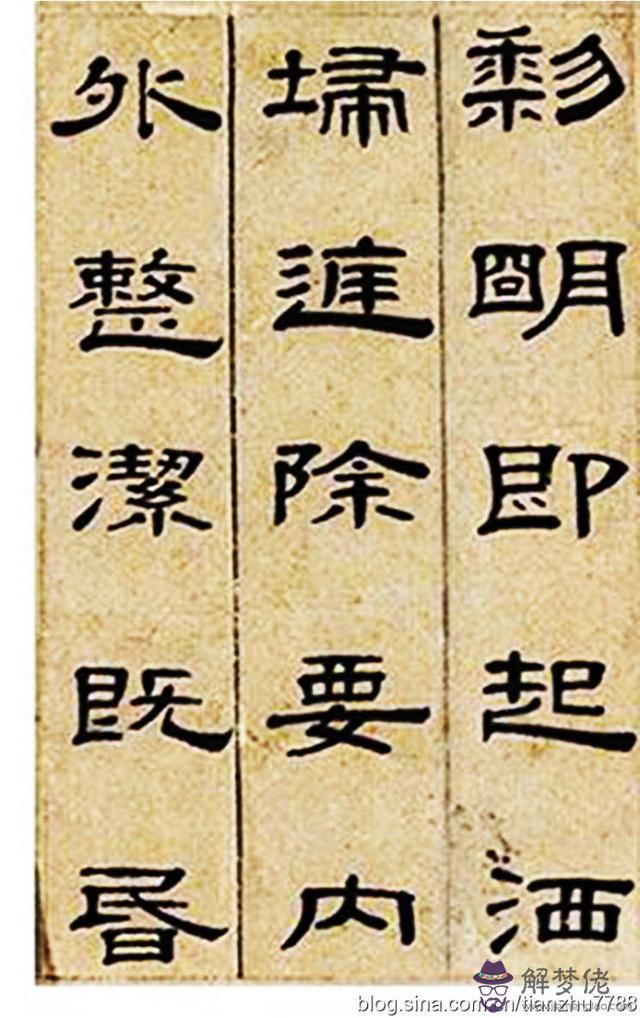 黎朙即起洒
埽庭除要内
外整潔既昬
解梦佬
blog.sina.com.cn/tianzhu7788